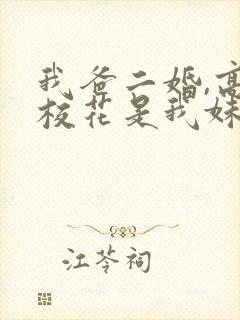 我爸二婚,高
校花是我妹
江苓祠